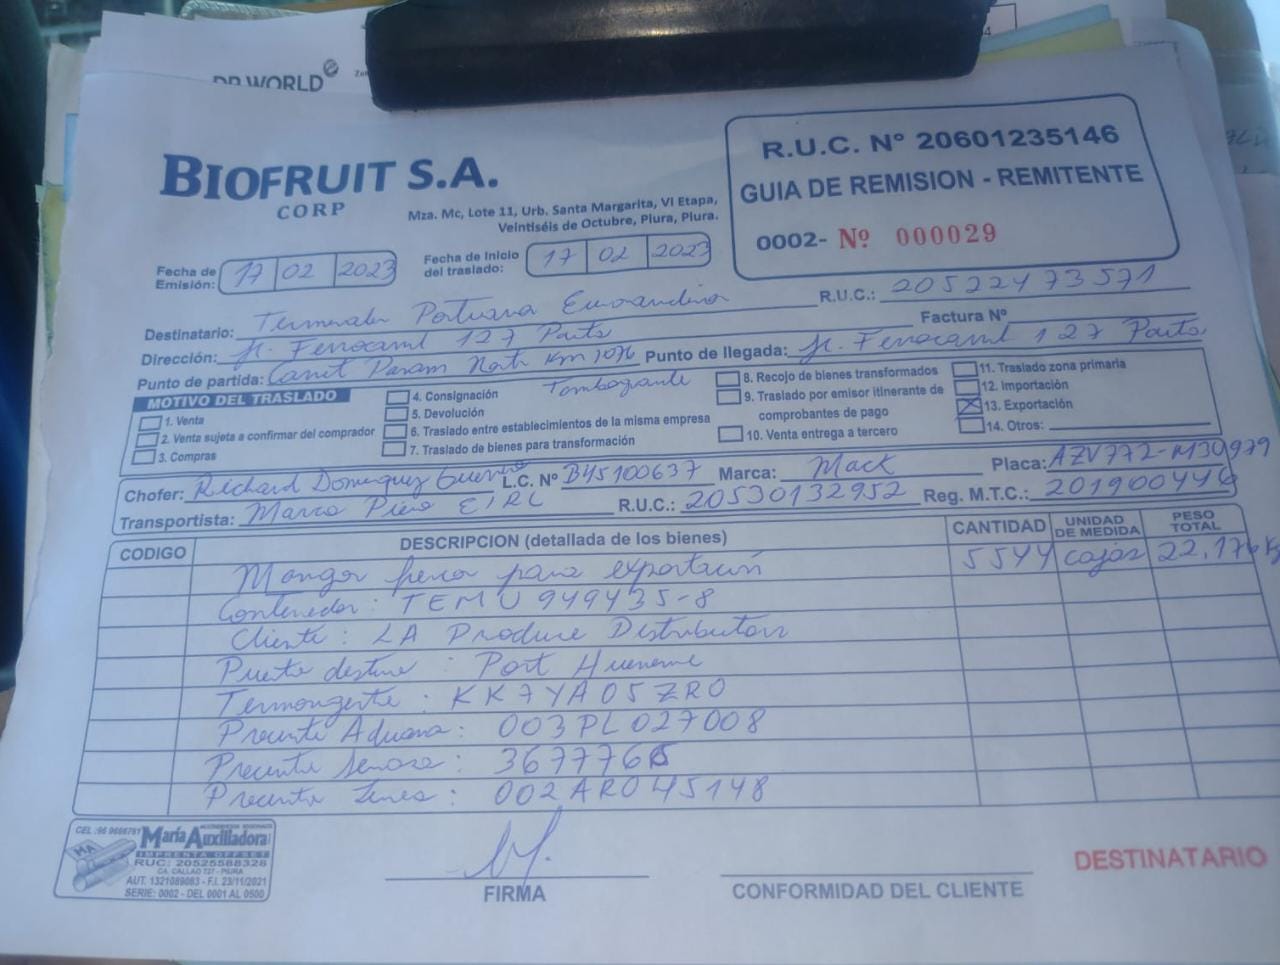 DP WORLD
BIOFRUIT S.A.
CORP
Mza. Mc, Lote 11, Urb. Santa Margarita, VI Etapa,
Veintiséis de Octubre, Piura, Piura.
R.U.C. Nº 20601235146
GUIA DE REMISION - REMITENTE
0002- Nº 000029
Fecha de Emisión: 17 02 2023
Fecha de Inicio del traslado: 17 02 2023
Destinatario: Portuario Euroandino R.U.C.: 20522473571
Factura Nº
Dirección: Jr. Ferrocarril 127 Paita
Punto de partida: Carret Panam Nort Km 1076 Tambogrande Punto de llegada: Jr. Ferrocarril 127 Paita
MOTIVO DEL TRASLADO
1. Venta
2. Venta sujeta a confirmar del comprador
3. Compras
4. Consignación
5. Devolución
6. Traslado entre establecimientos de la misma empresa
7. Traslado de bienes para transformación
8. Recojo de bienes transformados
9. Traslado por emisor itinerante de
comprobantes de pago
10. Venta entrega a tercero
11. Traslado zona primaria
12. Importación
13. Exportación
14. Otros:
Chofer: Richard Dominguez Guerrero L.C. Nº B45100637 Marca: Mack Placa: AZV772-M3O979
Transportista: Marco Piero EIRL R.U.C.: 20530132952 Reg. M.T.C.: 201900446
CODIGO DESCRIPCION (detallada de los bienes) CANTIDAD UNIDAD DE MEDIDA PESO TOTAL
Mangos fresco para exportación 5544 cajas 22,176 Kg
Contenedor: TEMU 949435-8
Cliente: LA Produce Distributors
Puerto destino: Port Hueneme
Termongente: KK7YA05ZR0
Precinto Aduana: 003PL027008
Precinto Senasa: 3677765
Precinto Linea: 002AR045148
CEL.:96 9666761
María Auxiliadora
IMPRENTA OFFSET
RUC: 20525588328
CA. CALLAO 727 - PIURA
AUT. 1321089083 - F.I. 23/11/2021
SERIE: 0002 - DEL 0001 AL 0500
FIRMA
CONFORMIDAD DEL CLIENTE
DESTINATARIO